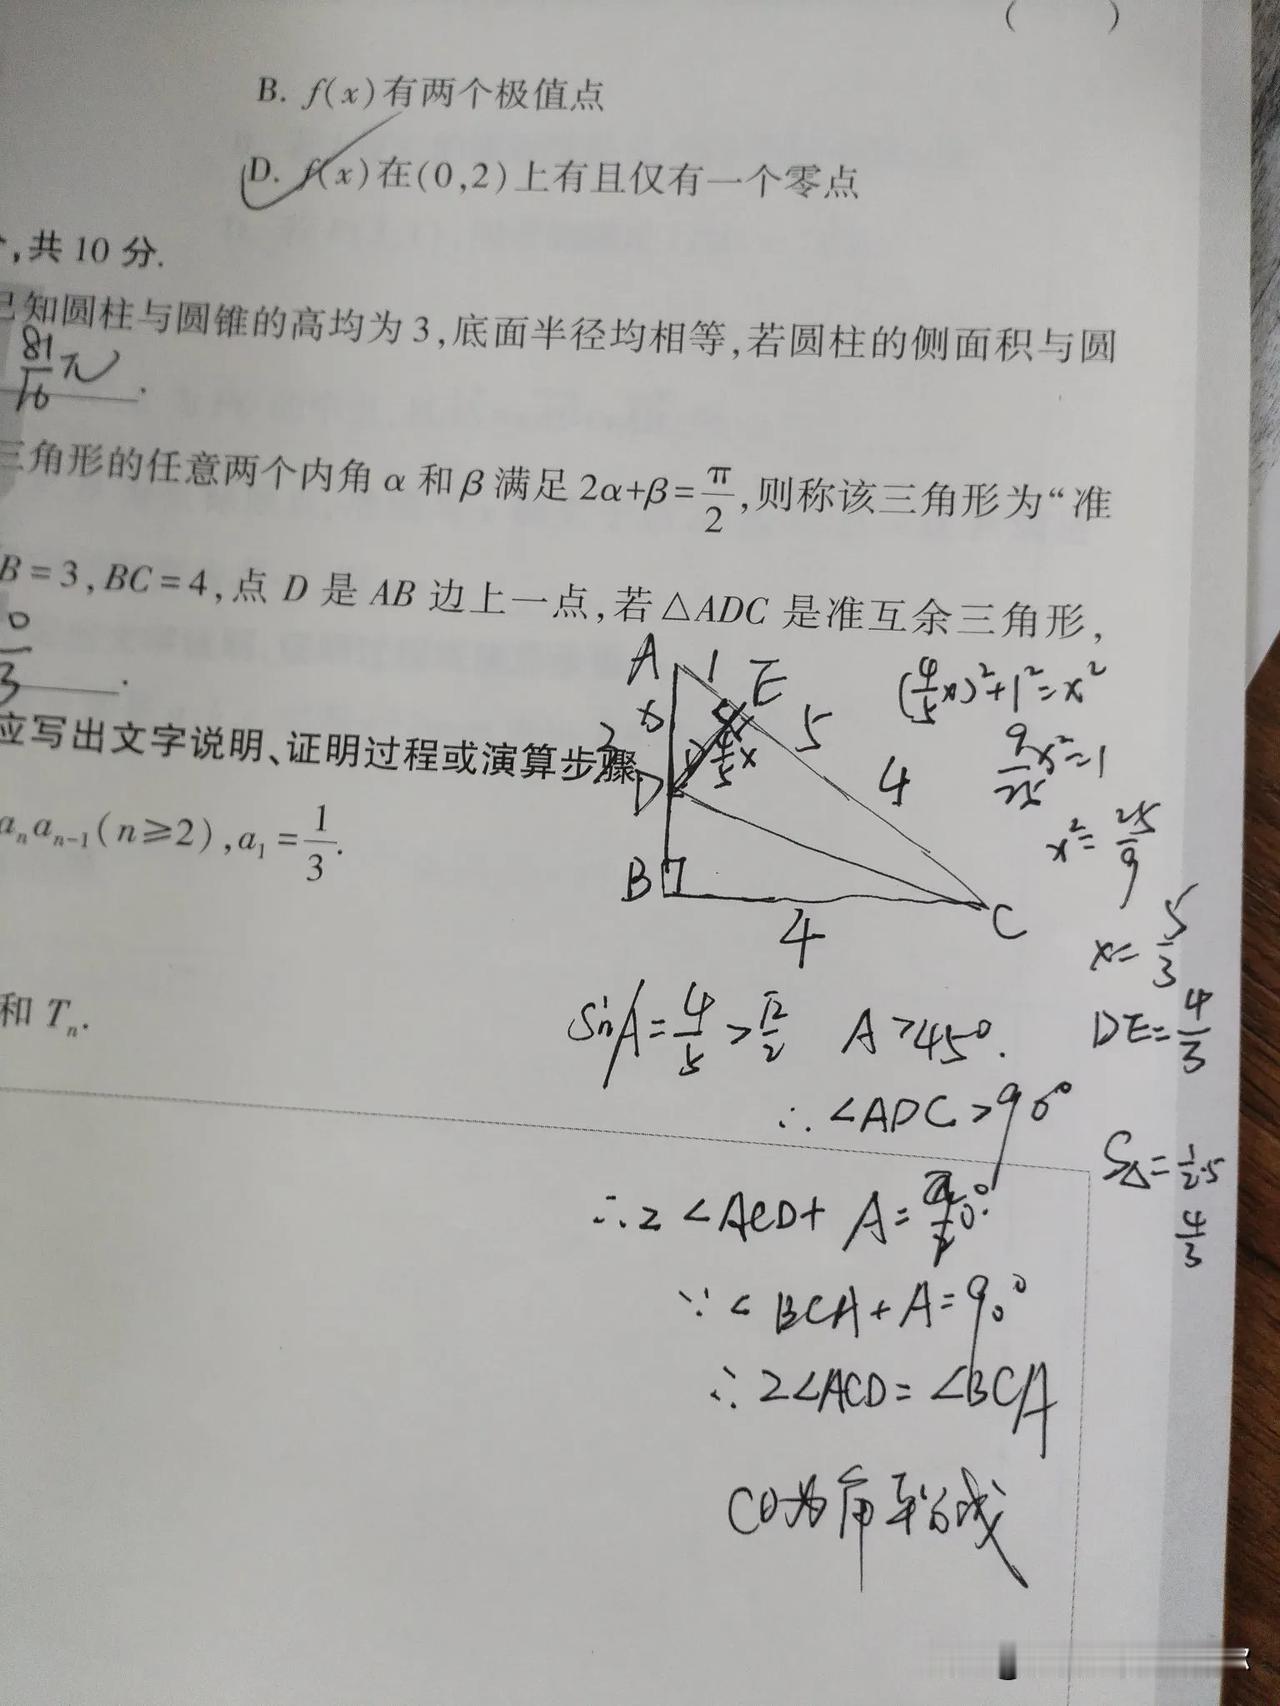 ( )
B. f(x)有两个极值点
D. f(x)在(0,2)上有且仅有一个零点
,共10分.
已知圆柱与圆锥的高均为3,底面半径均相等,若圆柱的侧面积与圆
81/16 π .
三角形的任意两个内角α和β满足2α+β=π/2,则称该三角形为“准
B=3,BC=4,点D是AB边上一点,若△ADC是准互余三角形,
0/3 .
应写出文字说明、证明过程或演算步骤
aₙaₙ₋₁(n≥2),a₁=1/3.
和Tₙ.
A 1 E
x 5
3 4/5x 4
D
B C
4
(4/5x)²+1²=x²
9/25x²=1
x²=25/9
x=5/3
DE=4/3
S△=1/2·5
4/3
sinA=4/5>√2/2 A>45°.
∴∠ADC>90°
∴2∠ACD+A=
∵∠BCA+A=90°
∴2∠ACD=∠BCA
CD为角平分线